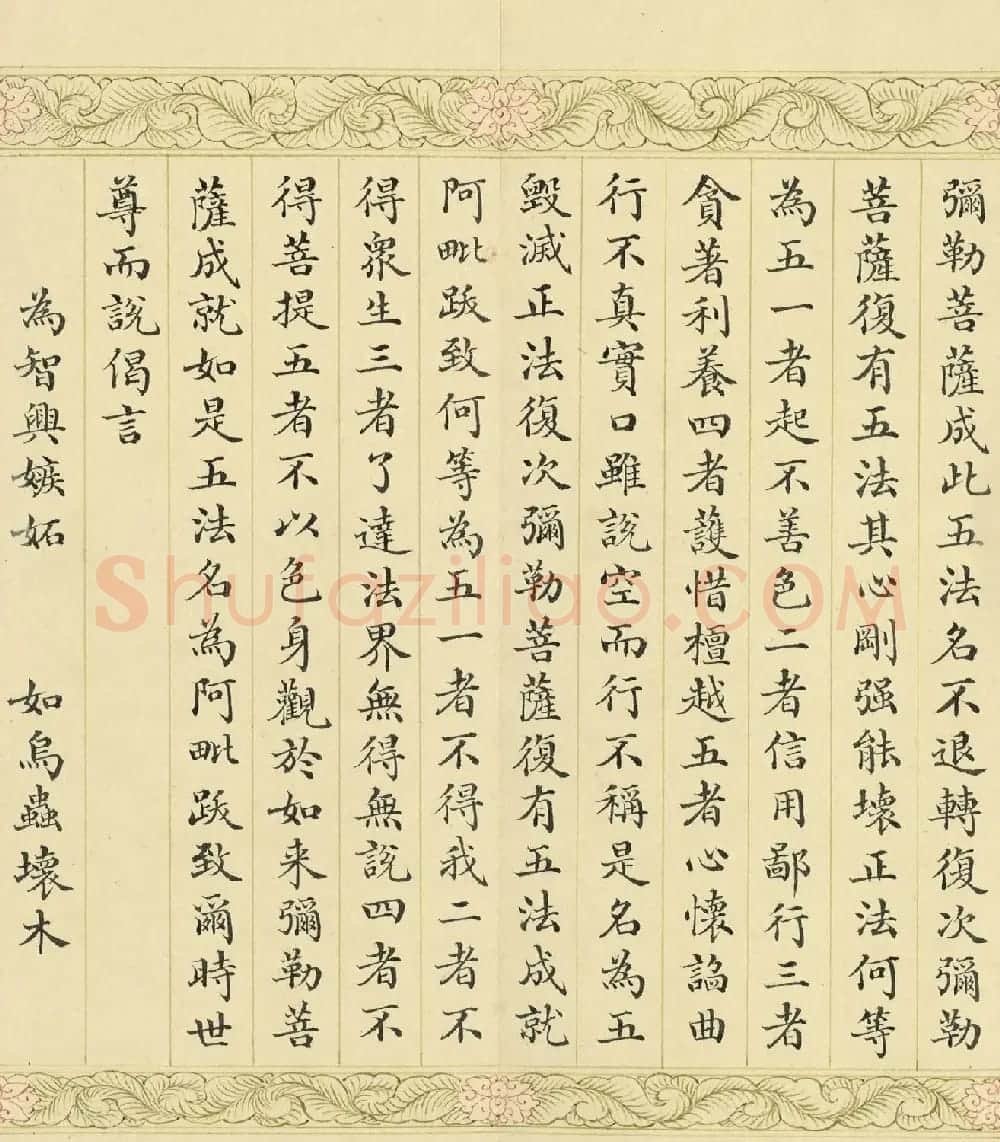 彌勒菩薩成此五法名不退轉復次彌勒
菩薩復有五法其心剛强能壞正法何等
為五一者起不善色二者信用鄙行三者
貪著利養四者護惜檀越五者心懷諂曲
行不真實口雖説空而行不稱是名為五
毀滅正法復次彌勒菩薩復有五法成就
阿毗跋致何等為五一者不得我二者不
得衆生三者了達法界無得無説四者不
得菩提五者不以色身觀於如来彌勒菩
薩成就如是五法名為阿毗跋致爾時世
尊而説偈言
為智興嫉妬 如烏蟲壞木
Shufaziliao.COM